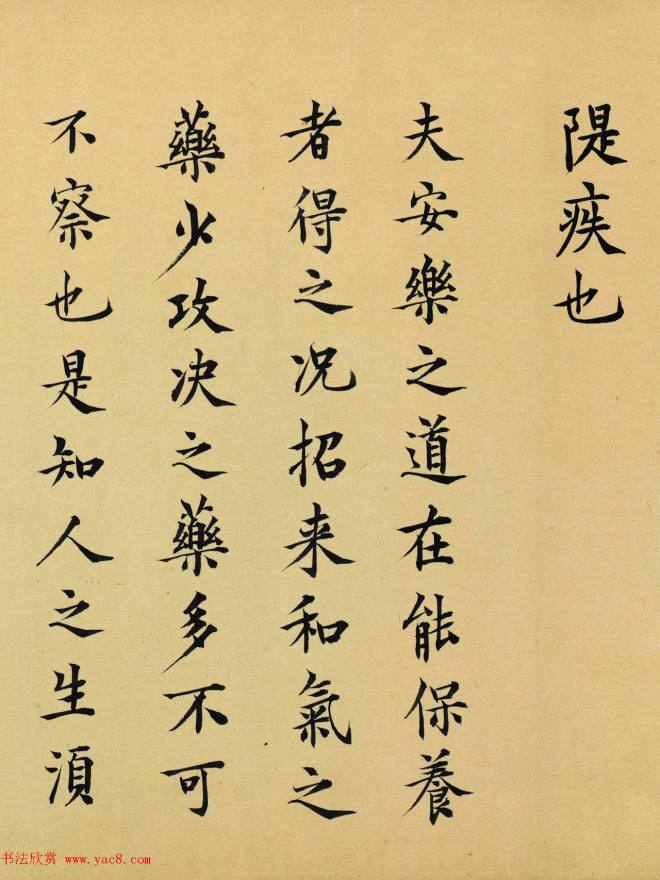 隄疾也
夫安樂之道在能保養
者得之况招来和氣之
藥少攻决之藥多不可
不察也是知人之生湏
书法欣赏 www.yac8.com